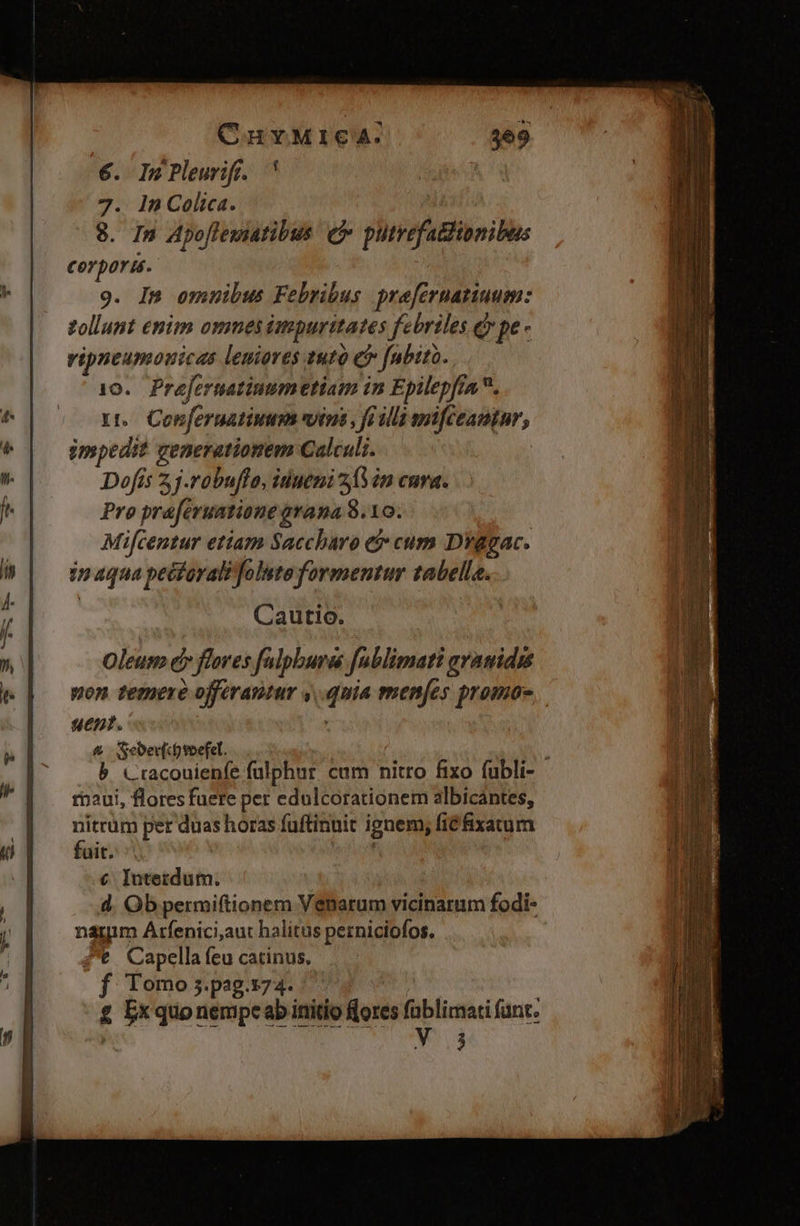 CHYMICA. 309
6. In Pleuriſi.
7. In Colica.
8. In Apoſtematibus & putrefactionibus
corporis.
9. In omnibus Febribus præſeruatiuum:
tollunt enim omnes impuritates febriles & pe-
ripneumonicas leniores tutò & ſubitò.
10. Præſeruatiuum etiam in Epilepſia g.
11. Conſeruatiuum vini, ſi illi miſceantur,
impedit generationem Calculi.
Doſis ʒj. robuſto, iuueni ʒß in cura.
Pro præſeruatione grana 8. 10.
Miſcentur etiam Saccharo & cum Dragac.
in aqua pectorali ſoluto formentur tabellæ.
Cautio.
Oleum & flores ſulphuris ſublimati grauidis
non temerè offerantur, quia menſes promo-
uent.
a Federſchweſel.
b Cracouienſe ſulphur cum nitro fixo ſubli-
maui, flores fuere per edulcorationem albicantes,
nitrum per duas horas ſuſtinuit ignem, ſic fixatum
fuit.
c Interdum.
d Ob permiſtionem Venarum vicinarum fodi-
narum Arſenici, aut halitus pernicioſos.
e Capella ſeu catinus.
f Tomo 3. pag. 174.
g Ex quo nempe ab initio flores ſublimati ſunt.
V 3